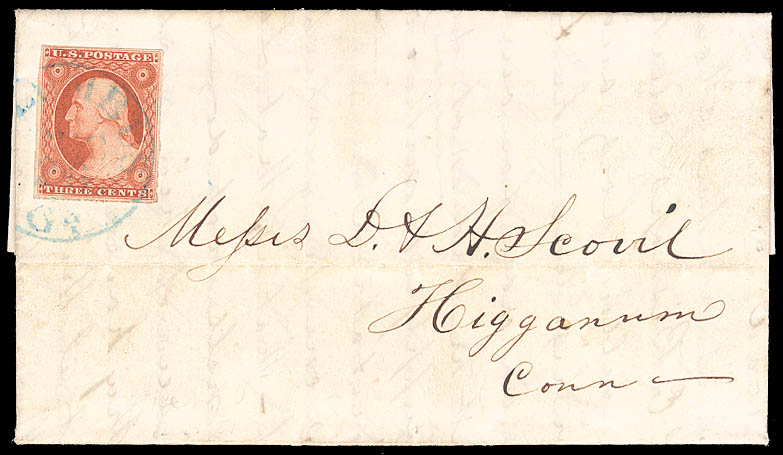 U.S. POSTAGE
THREE CENTS
GA
Messrs D. & H. Scovil
Higganum
Conn